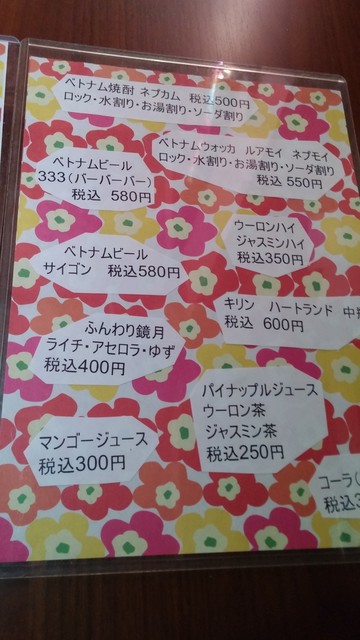 ベトナム焼酎 ネプカム 税込500円
ロック・水割り・お湯割り・ソーダ割り
ベトナムウォッカ ルアモイ ネプモイ
ロック・水割り・お湯割り・ソーダ割り
税込 550円
ベトナムビール
333(バーバーバー)
税込 580円
ウーロンハイ
ジャスミンハイ
税込350円
ベトナムビール
サイゴン 税込580円
キリン ハートランド 中
税込 600円
ふんわり鏡月
ライチ・アセロラ・ゆず
税込400円
パイナップルジュース
ウーロン茶
ジャスミン茶
税込250円
マンゴージュース
税込300円
コーラ(
税込